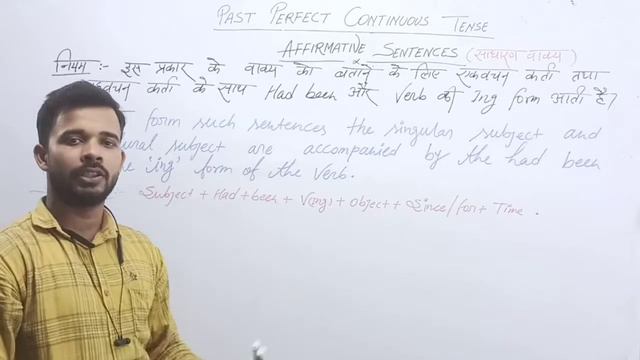 PAST PERFECT CONTINUOUS TENSE
AFFIRMATIVE SENTENCES (साधारण वाक्य)
नियम :- इस प्रकार के वाक्य को बनाने के लिए एकवचन कर्ता तथा
कर्ता के साथ Had been और Verb की Ing form आती है।
form such sentences the singular subject and
subject are accompanied by the had been
'ing' form of the Verb.
Subject + Had + been + V(ing) + Object + Since/for + Time .